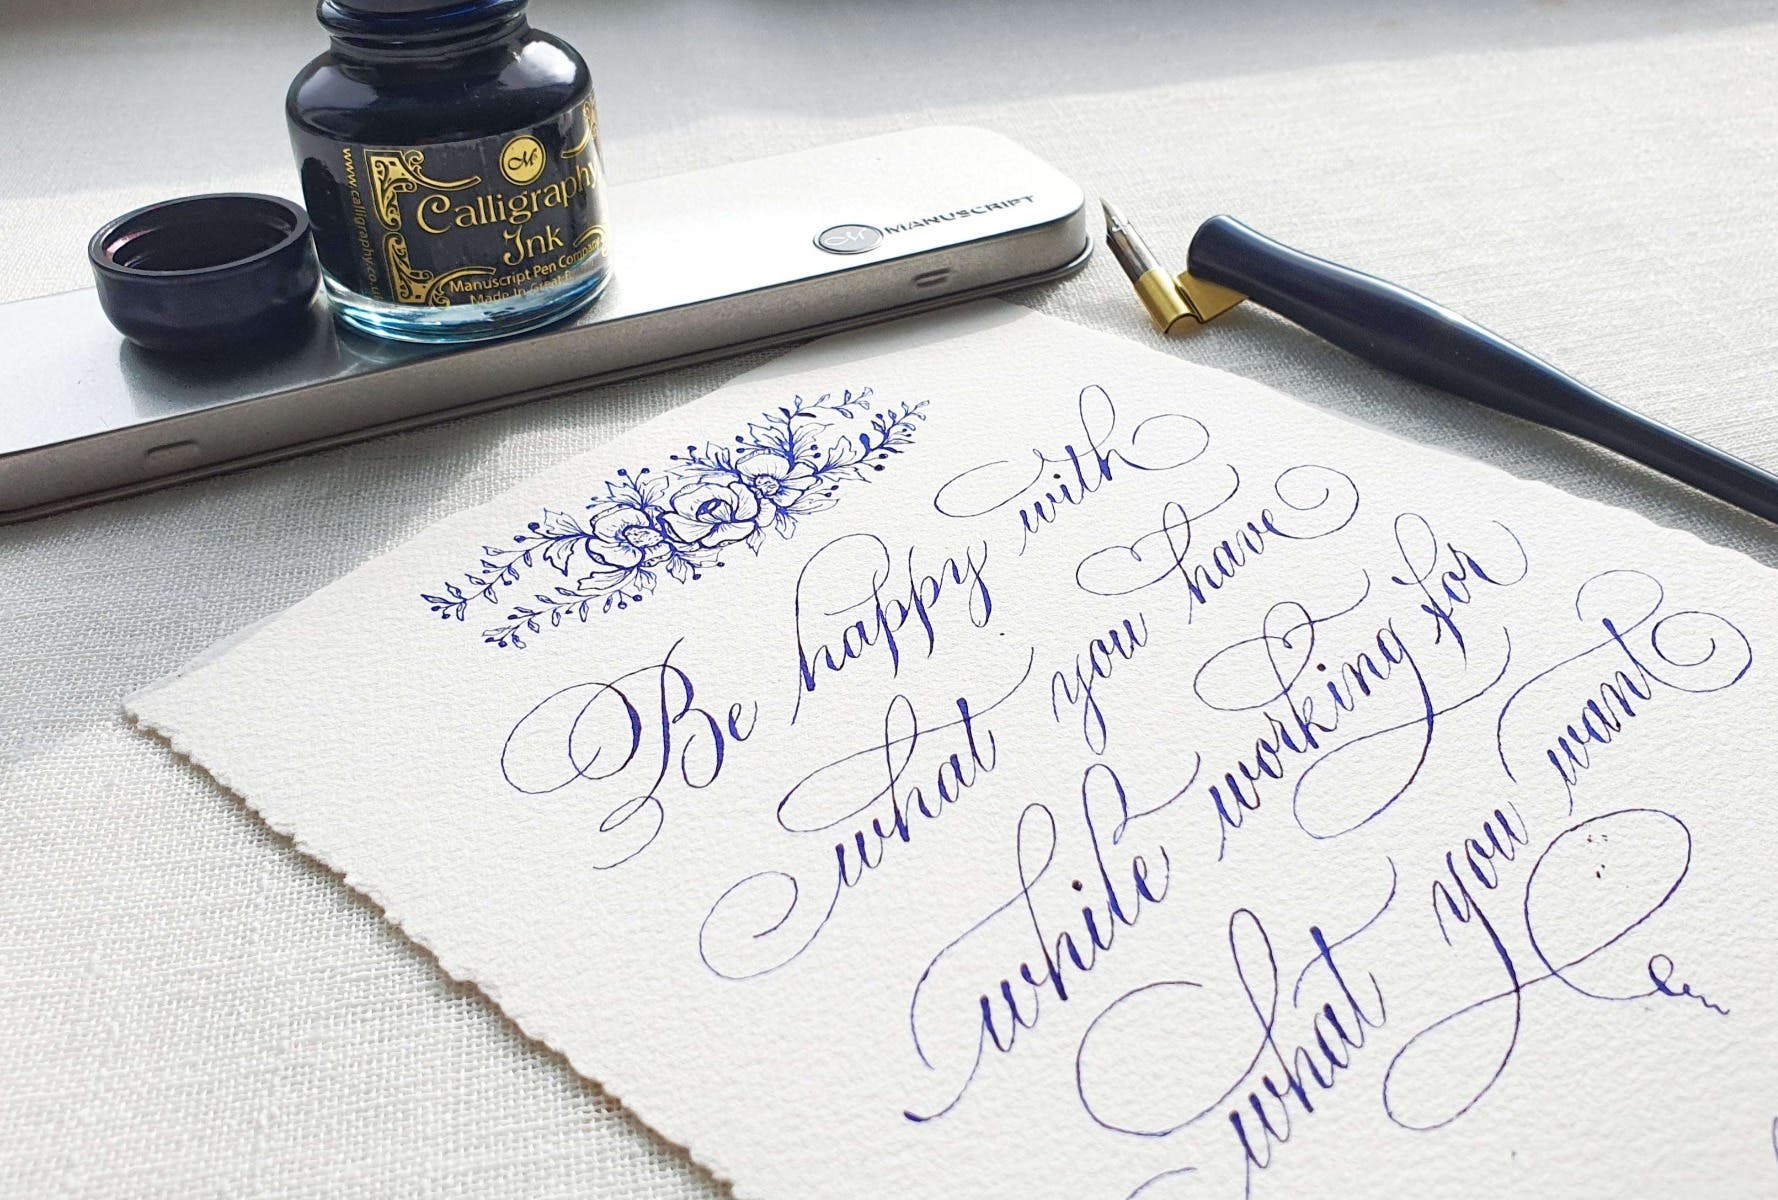 www.calligraphy.co.uk
M
Calligraphy
Ink
Manuscript Pen Company
Made in Great
M MANUSCRIPT
Be happy with
what you have
while working for
what you want